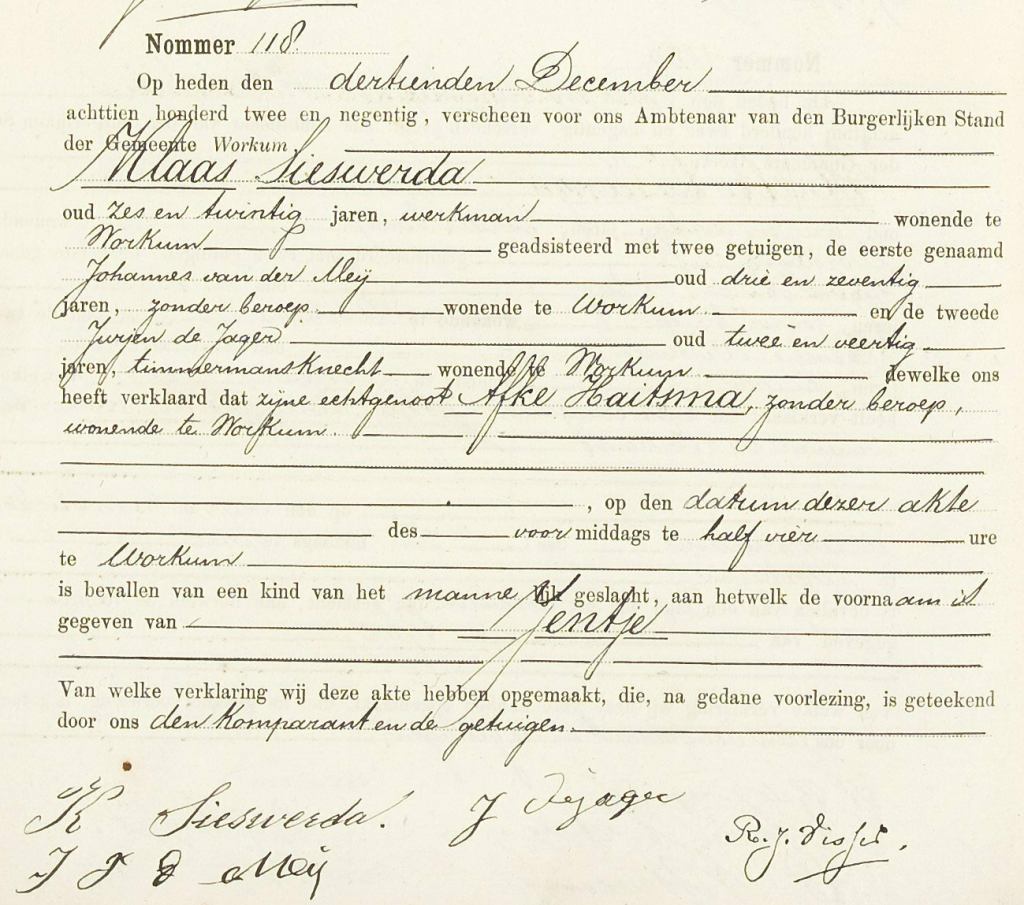 Nommer 118.
Op heden den dertienden December
achttien honderd twee en negentig, verscheen voor ons Ambtenaar van den Burgerlijken Stand
der Gemeente Workum
Klaas Sieswerda
oud zes en twintig jaren, werkman wonende te
Workum geadsisteerd met twee getuigen, de eerste genaamd
Johannes van der Meij oud drie en zeventig
jaren, zonder beroep wonende te Workum en de tweede
Jurjen de Jager oud twee en veertig
jaren, timmermansknecht wonende te Workum dewelke ons
heeft verklaard dat zijne echtgenoot Afke Haitsma, zonder beroep,
wonende te Workum.
, op den datum dezer akte
des voormiddags te half vier ure
te Workum
is bevallen van een kind van het mannelijk geslacht, aan hetwelk de voornaam is
gegeven van Jentje
Van welke verklaring wij deze akte hebben opgemaakt, die, na gedane voorlezing, is geteekend
door ons den komparant en de getuigen.
K Sieswerda. J dejager
J J d Meij